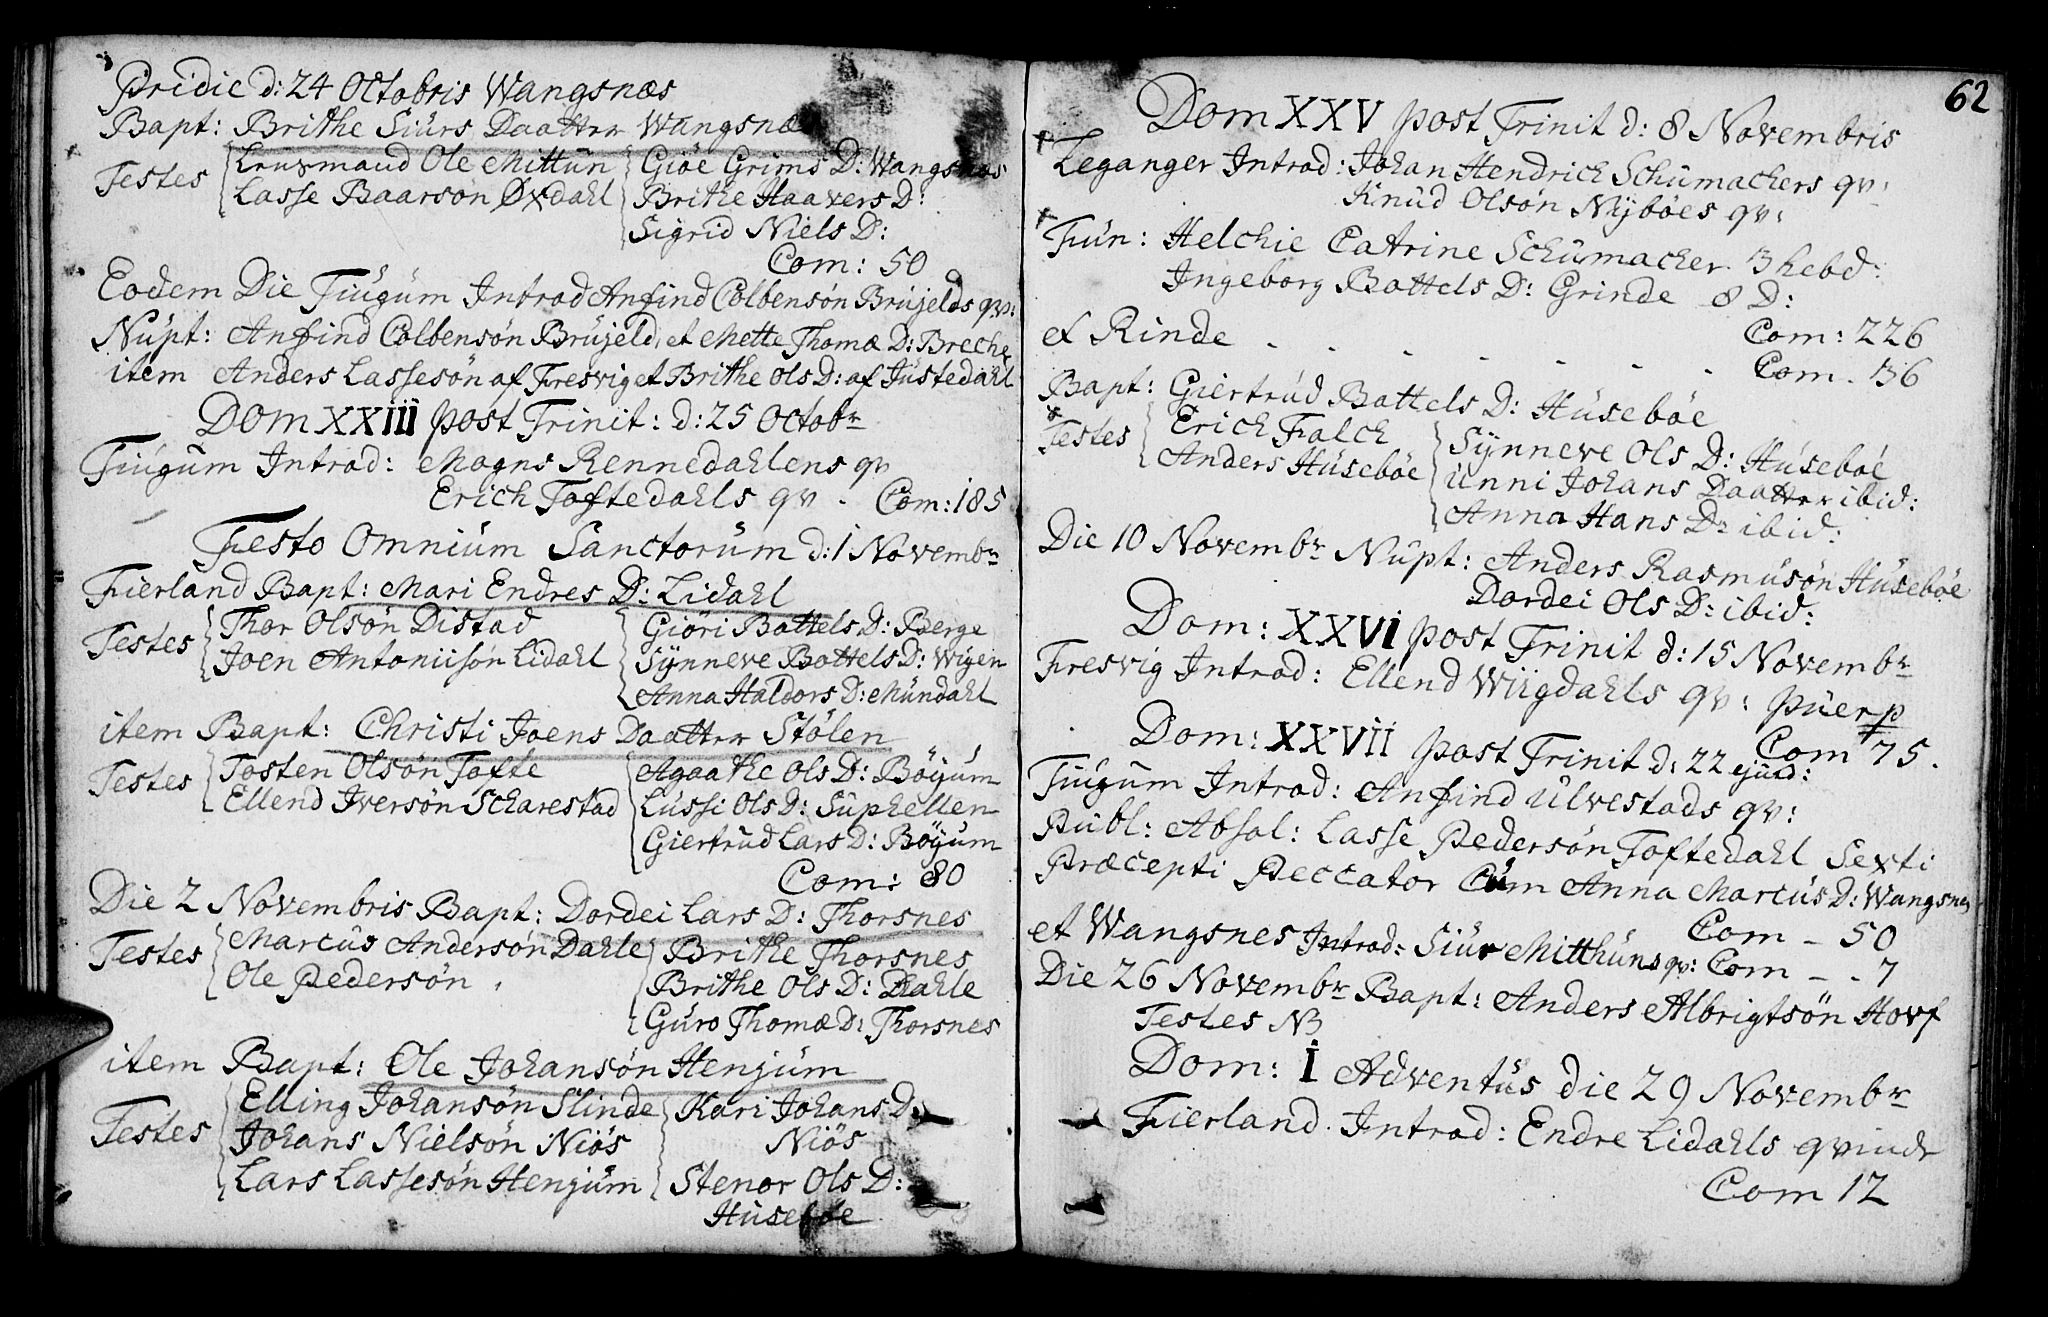 Pridie d: 24 Octobris Wangsnæs
Bapt: Brithe Siurs Daatter Wangsnæ
Testes Ole Mittun Giöe Grims D: Wangsnæs
Lasse Baarsøn Øxdahl Brithe Haavers D:
Sigrid Niels D:
Com: 50
Eodem Die Tiugum Introd Anfind Colbensøn Brujelds qv:
Nupt: Anfind Colbensøn Brujeld, et Mette Thomæ D: Breche
item Anders Lassesøn af Fresvig et Brithe Ols D: af Justedahl
Dom XXIII post Trinit: d: 25 Octobr
Tiugum Introd: Mogns Rennedahlens qv
Erich Toftedahls qv. Com: 185
Festo Omnium Sanctorum d: 1 Novembr
Fierland Bapt: Mari Endres D: Lidahl
Testes Thor Olsøn Distad Giöri Bottels D: Berge
Joen Antoniisøn Lidahl Synneve Bottels D: Wigen
Anna Haldors D: Mundahl
item Bapt: Christi Joens Daatter Stølen
Testes Tosten Olsøn Tofte Agaathe Ols D: Böyum
Ellend Iversøn Scharestad Lussi Ols D: Suphellen
Giertrud Lars D: Böyum
Com: 80
Die 2 Novembris Bapt: Dordei Lars D: Thorsnes
Testes Marcus Andersøn Dahle Brithe Thorsnes
Ole Pedersøn. Brithe Ols D: Dahle
Guro Thomæ D: Thorsnes
item Bapt: Ole Johansøn Henjum
Testes Elling Johansøn Slinde Kari Johans D:
Johans Nielsøn Niös Niös
Lars Lassesøn Henjum Stenor Ols D:
Huseböe
62
Dom XXV post Trinit d: 8 Novembris
Leganger Introd: Johan Hendrich Schumachers qv:
Knud Olsøn Nyböes qv:
Fun: Helchie Catrine Schumacher 3 hebd:
Ingeborg Bottels D: Grinde 8 D:
Com: 226
et Rinde - - - - - - - Com. 36
Bapt: Giertrud Bottels D: Huseböe
Testes Erich Falch Synneve Ols D: Huseböe
Anders Huseböe Unni Johans Daatter ibid:
Anna Hans Dr ibid:
Die 10 Novembr Nupt: Anders Rasmusøn Huseböe
Dordei Ols D: ibid:
Dom: XXVI post Trinit d: 15 Novembr
Fresvig Introd: Ellend Wiigdahls qv: puerp
Com 75.
Dom: XXVII post Trinit d: 22 ejusd:
Tiugum Introd: Anfind Ulvestads qv:
Publ: Absol: Lasse Pedersøn Toftedahl Sexti
Præcepti Peccator Cum Anna Marcus D: Wangsnes
Com - 50
et Wangsnes Introd: Siur Mitthuns qv: Com - - 7
Die 26 Novembr Bapt: Anders Albrigtsøn Hovf
Testes NB
Dom: I Adventus die 29 Novembr
Fierland. Introd: Endre Lidahls qvinde
Com 12